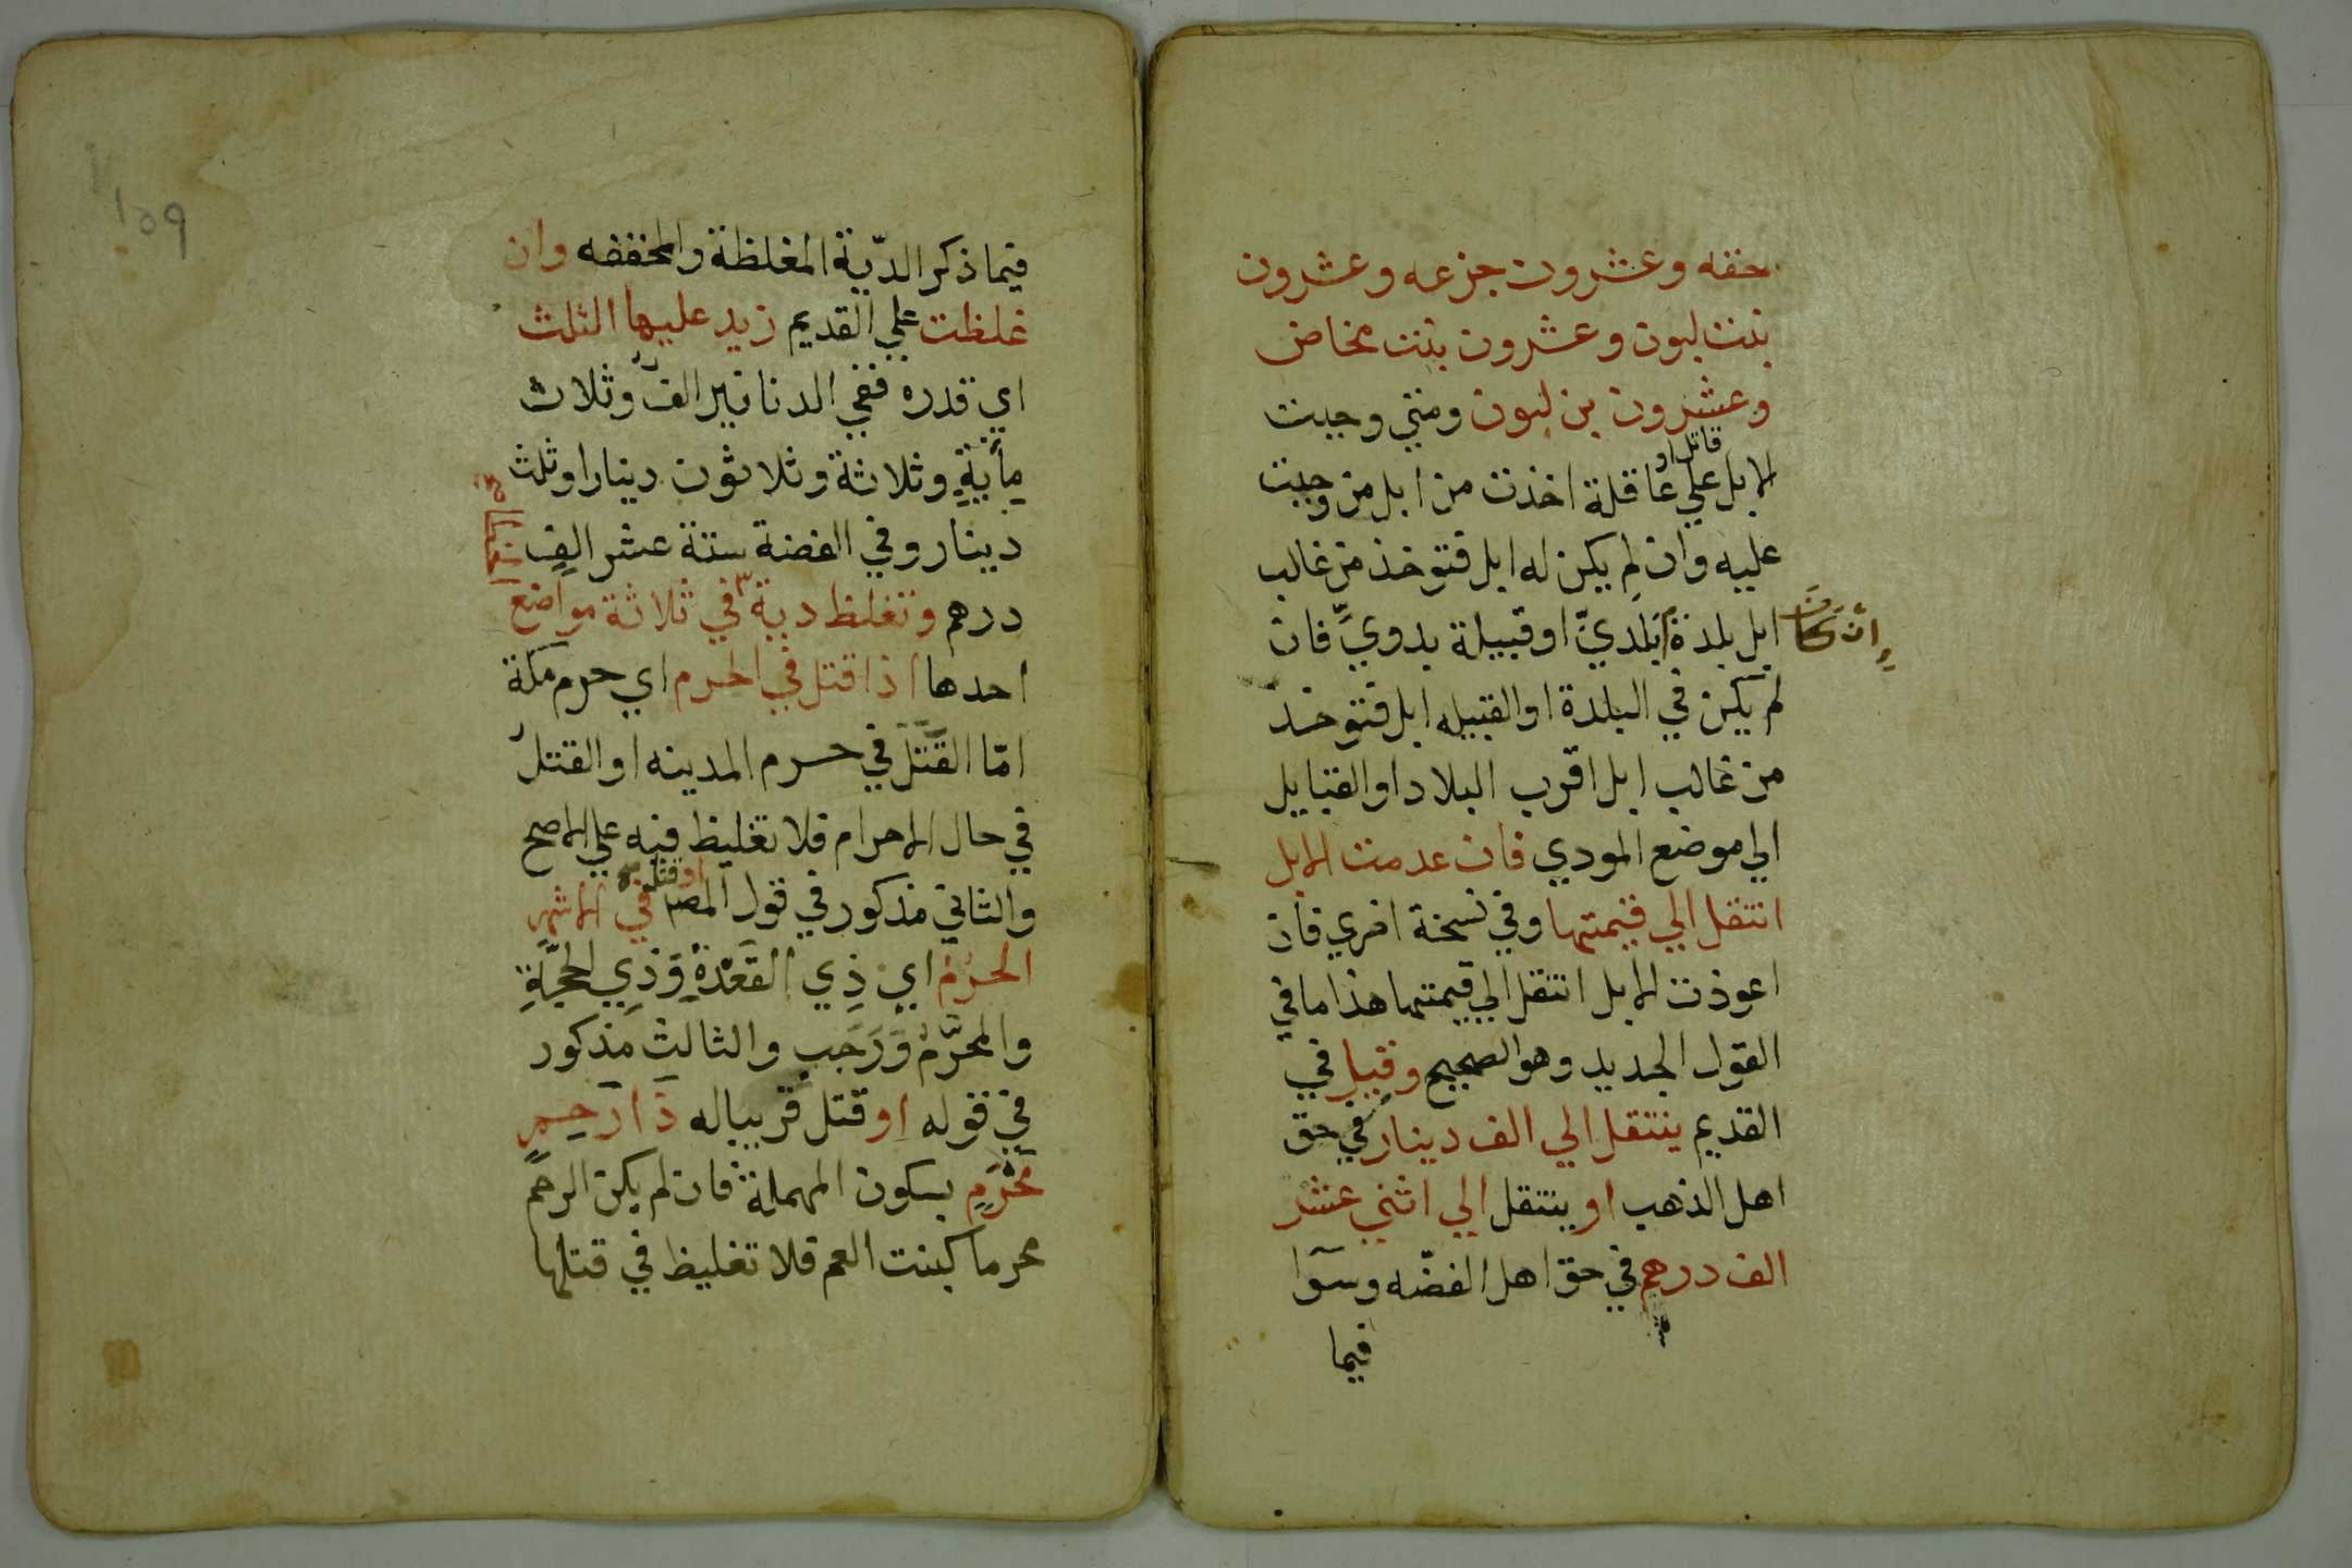 حقه وعشرون جزعه وعشرون
بنت لبون وعشرون بنت مخاض
وعشرون بن لبون ومتي وجبت
قاتل او
الابل علي عاقلة اخذت من ابل من وجبت
عليه وان لم يكن له ابل فتوخذ من غالب
ان كان
ابل بلدة بلديّ او قبيلة بدويّ فان
لم يكن في البلدة او القبيله ابل فتوخذ
من غالب ابل اقرب البلاد او القبايل
الي موضع المودي فان عدمت الابل
انتقل الي قيمتها وفي نسخة اخري فان
اعوذت الابل انتقل الي قيمتها هذا ما في
القول الجديد وهو الصحيح وقيل في
القديم ينتقل الي الف دينار في حق
اهل الذهب او ينتقل الي اثني عشر
الف درهم في حق اهل الفضّه وسوآ
فيما
١٥٩
فيما ذكر الدّية المغلظة والمخففه وان
غلظت علي القديم زيد عليها الثلث
اي قدره ففي الدنانير الفٌ وثلاث
مأيةٍ وثلاثة وثلاثون دينارا وثلث
دينار وفي الفضة ستة عشر الفِ
درهم وتغلظ دية في ثلاثة مواضع
احدها اذا قتل في الحرم اي حرم مكة
امّا القَتل في حرم المدينه او القتلُ
في حال الاحرام فلا تغليظ فيه علي الاصح
او قتل
والثاني مذكور في قول المصـ في الاشهر
الحرم اي ذِي القَعْدةِ وَذِي الحِجَّةِ
والمحرَّم وَرَجَبٍ والثالث مَذكور
في قوله او قتل قريبا له ذَا رَحِمٍ
مَحْرَمٍ بسكون المهملة فان لم يكن الرحم
محرما كبنت العم فلا تغليظ في قتلها